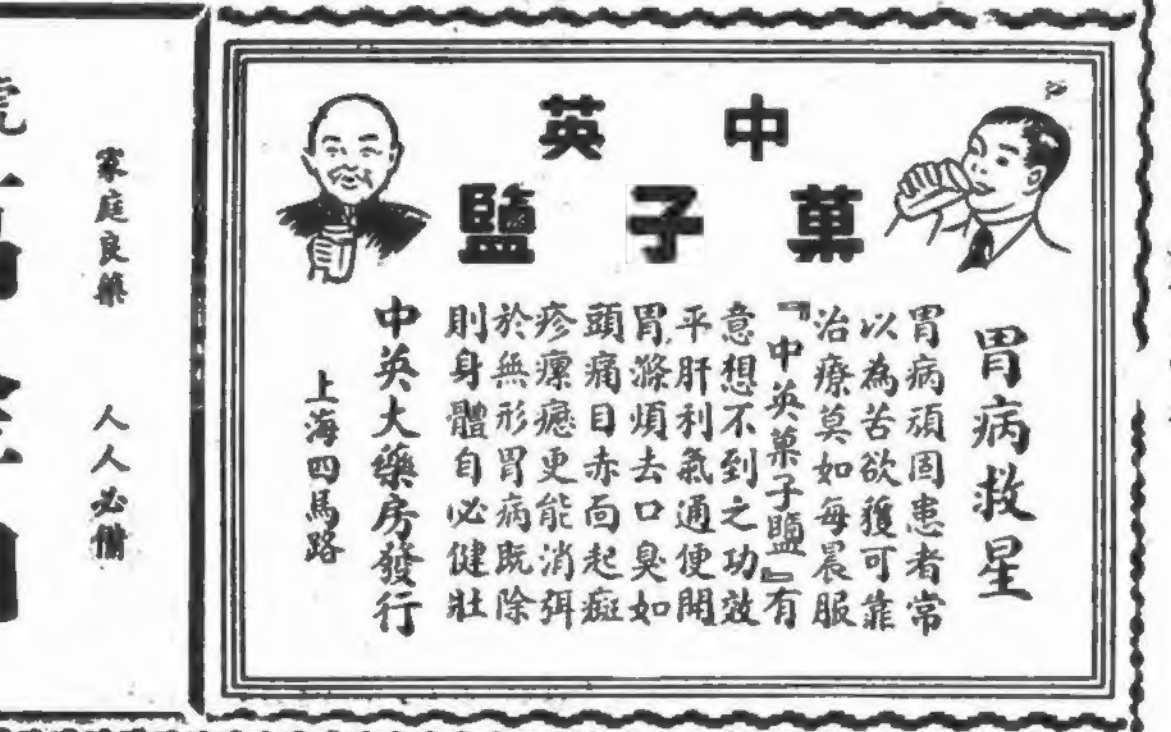 中英
菓子鹽
胃病救星
胃病頑固患者常
以為苦欲獲可靠
治療莫如每晨服
『中英菓子鹽』有
意想不到之功效
平肝利氣通便開
胃滌煩去口臭如
頭痛目赤面起痴
疹瘰癧更能消弭
於無形胃病既除
則身體自必健壯
中英大藥房發行
上海四馬路
家庭良藥
人人必備
虎